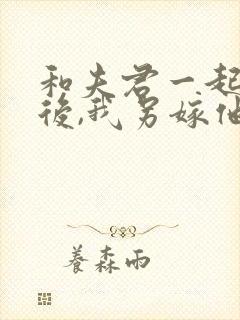 和夫君一起
後,我另嫁他
養森雨